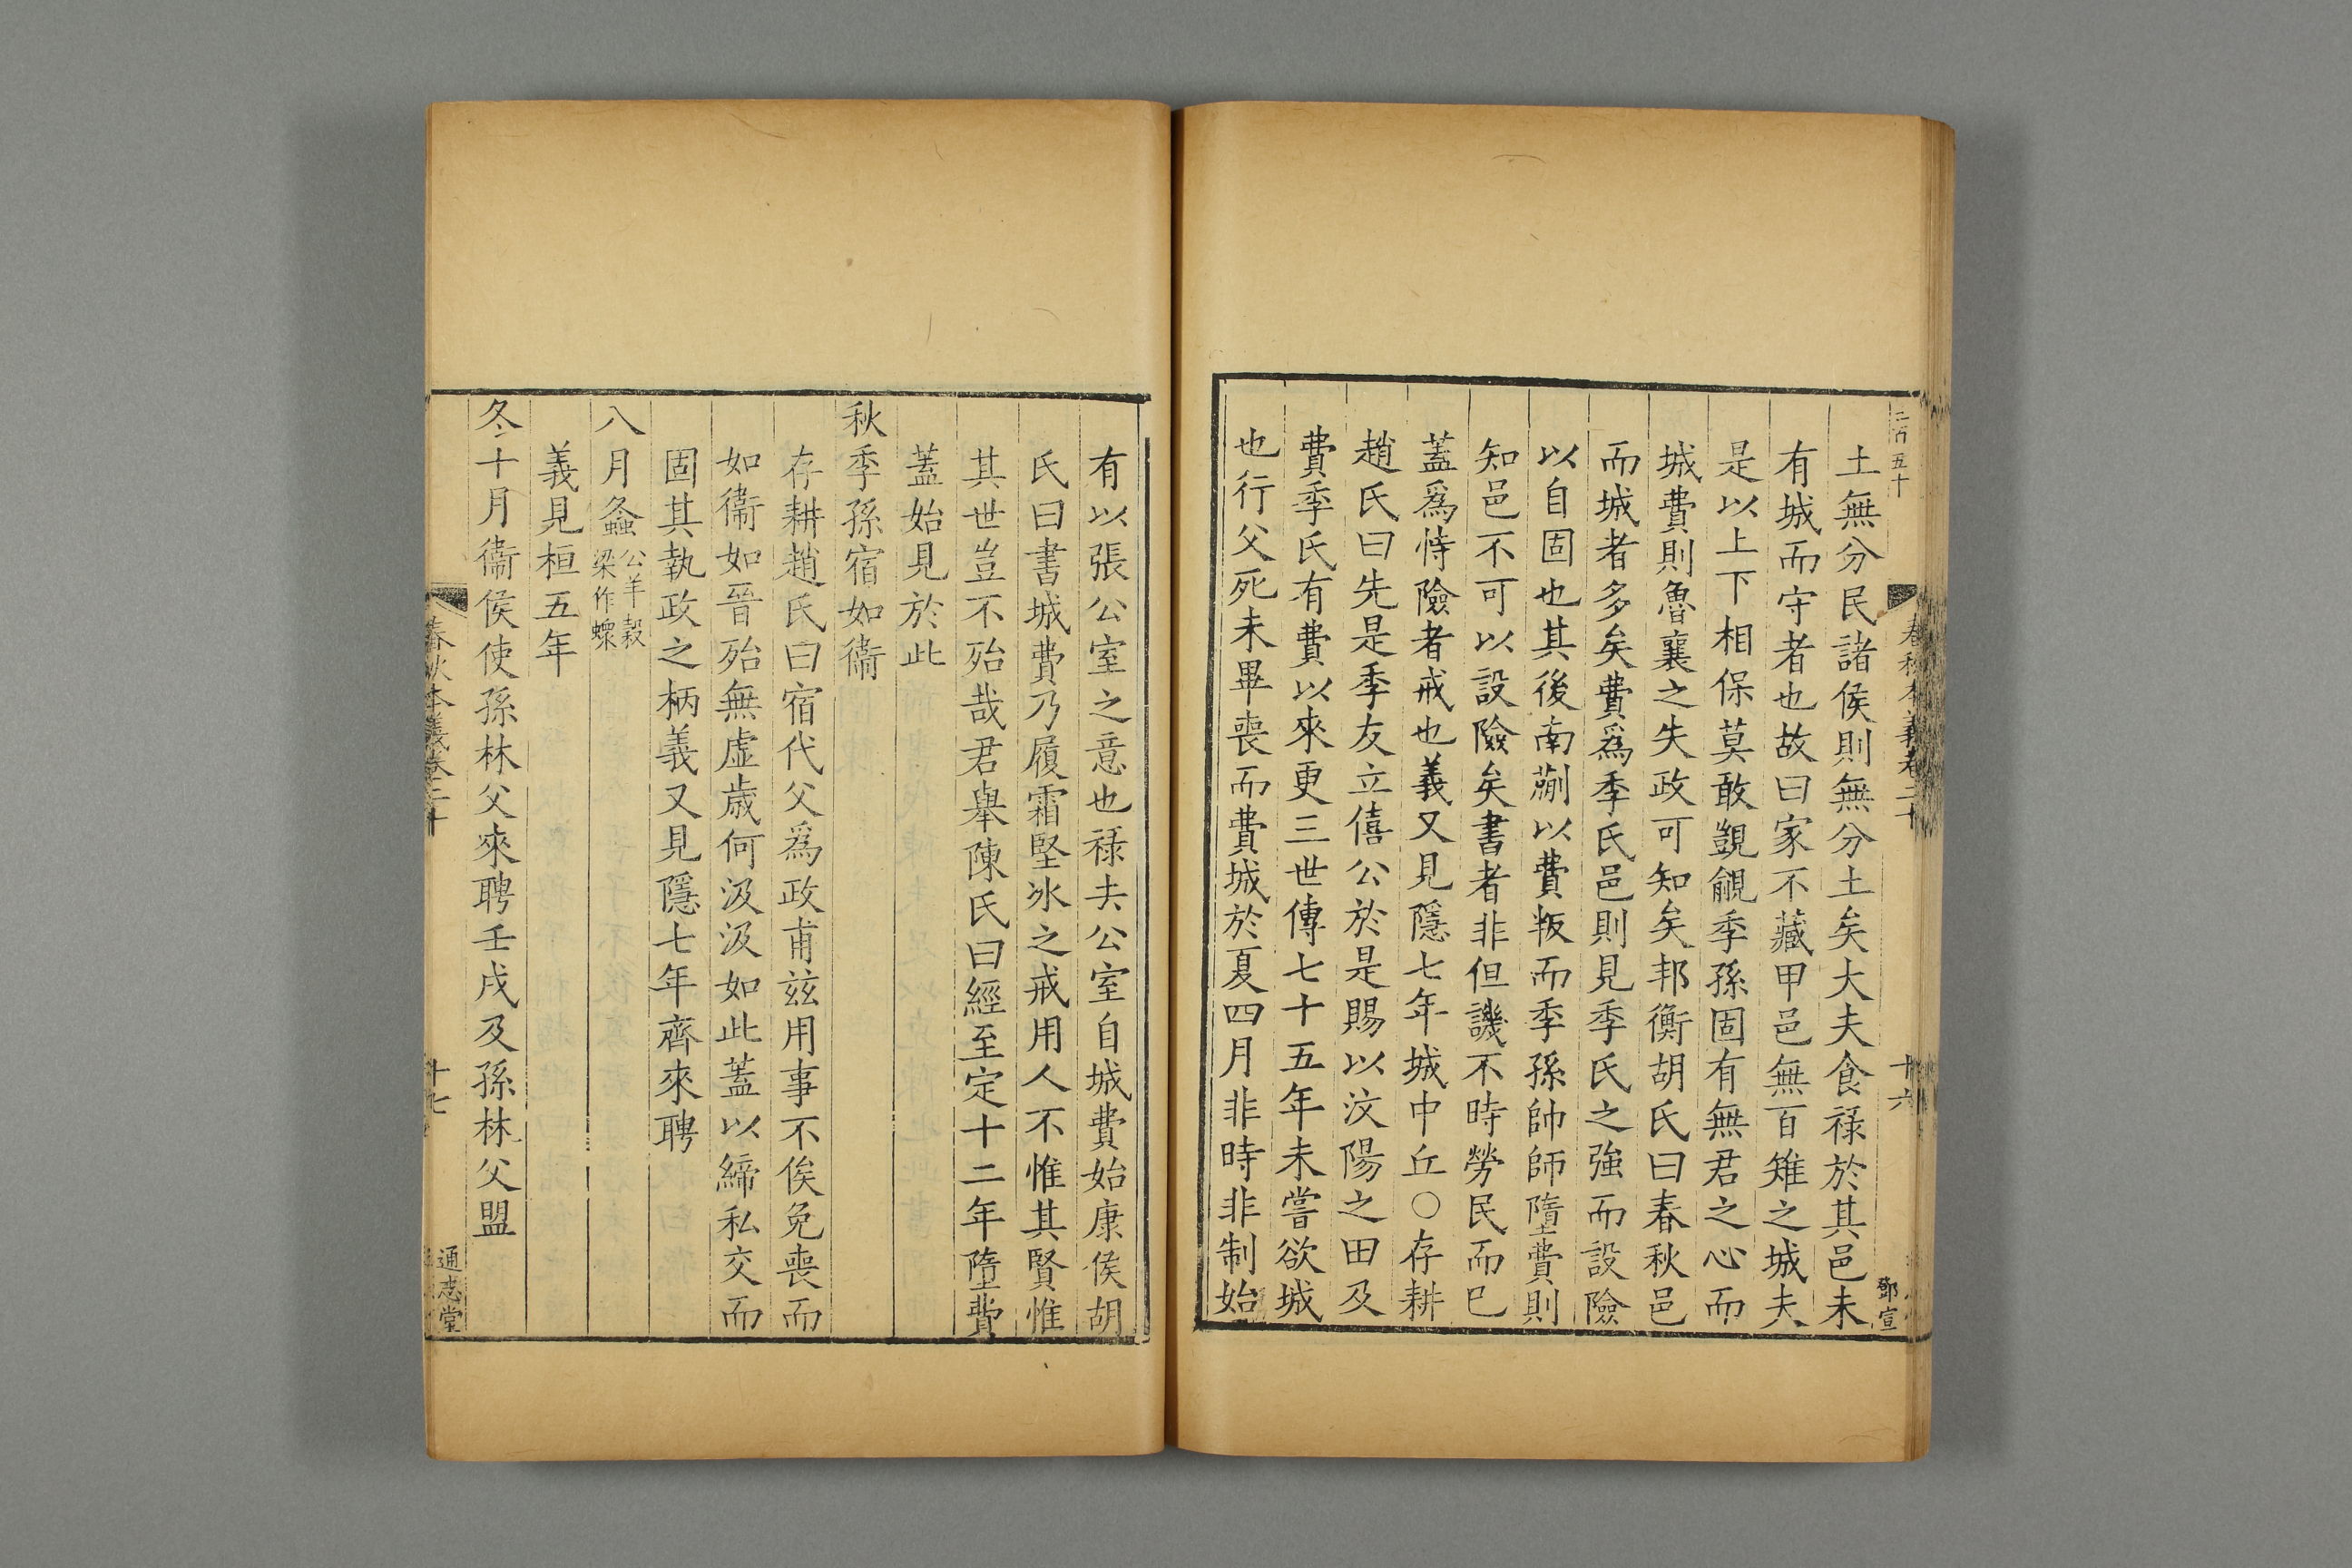 二百五十
春秋本義卷二十
十六
鄧宣
土無分民諸侯則無分土矣大夫食祿於其邑未
有城而守者也故曰家不藏甲邑無百雉之城夫
是以上下相保莫敢覬覦季孫固有無君之心而
城費則魯襄之失政可知矣邦衡胡氏曰春秋邑
而城者多矣費爲季氏邑則見季氏之強而設險
以自固也其後南蒯以費叛而季孫帥師墮費則
知邑不可以設險矣書者非但譏不時勞民而已
蓋爲恃險者戒也義又見隱七年城中丘○存耕
趙氏曰先是季友立僖公於是賜以汶陽之田及
費季氏有費以來更三世傳七十五年未嘗欲城
也行父死未畢喪而費城於夏四月非時非制始
有以張公室之意也祿去公室自城費始康侯胡
氏曰書城費乃履霜堅冰之戒用人不惟其賢惟
其世豈不殆哉君舉陳氏曰經至定十二年墮費
蓋始見於此
秋季孫宿如衞
存耕趙氏曰宿代父爲政甫玆用事不俟免喪而
如衞如晉殆無虛歲何汲汲如此蓋以締私交而
固其執政之柄義又見隱七年齊來聘
八月螽公羊穀梁作蝝
義見桓五年
冬十月衞侯使孫林父來聘壬戌及孫林父盟
春秋本義卷二十
十七
通志堂